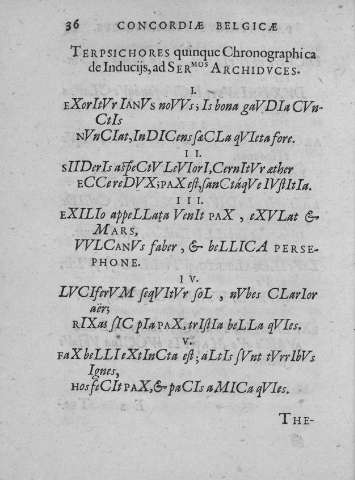 36 CONCORDIÆ BELGICÆ
TERPSICHORES quinque Chronographica
de Inducijs, ad SERᴹᴼˢ ARCHIDVCES.
I.
EXorItVr IANVS noVVs; Is bona gaVDIa CVn-
CtIs
NVnCIat, InDICens ſæCLa qVIeta fore.
II.
SIIDerIs aſpeCtV LeVIorI, CernItVr æther
ECCe reDVX; PAX eſt, ſanCtáqVe IVſtItIa.
III.
EXILIo appeLLata VenIt PAX, eXVLat &
MARS,
VVLCANVs faber, & beLLICA PERSE-
PHONE.
IV.
LVCIferVM ſeqVItVr ſoL, nVbes CLarIor
aër;
RIXas ſIC pIa PAX, trIſtIa beLLa qVIes.
V.
FAX beLLI eXtInCta eſt; aLtIs ſVnt tVrrIbVs
Ignes,
HOS feCIt PAX, & paCIs aMICa qVIes.
THE-